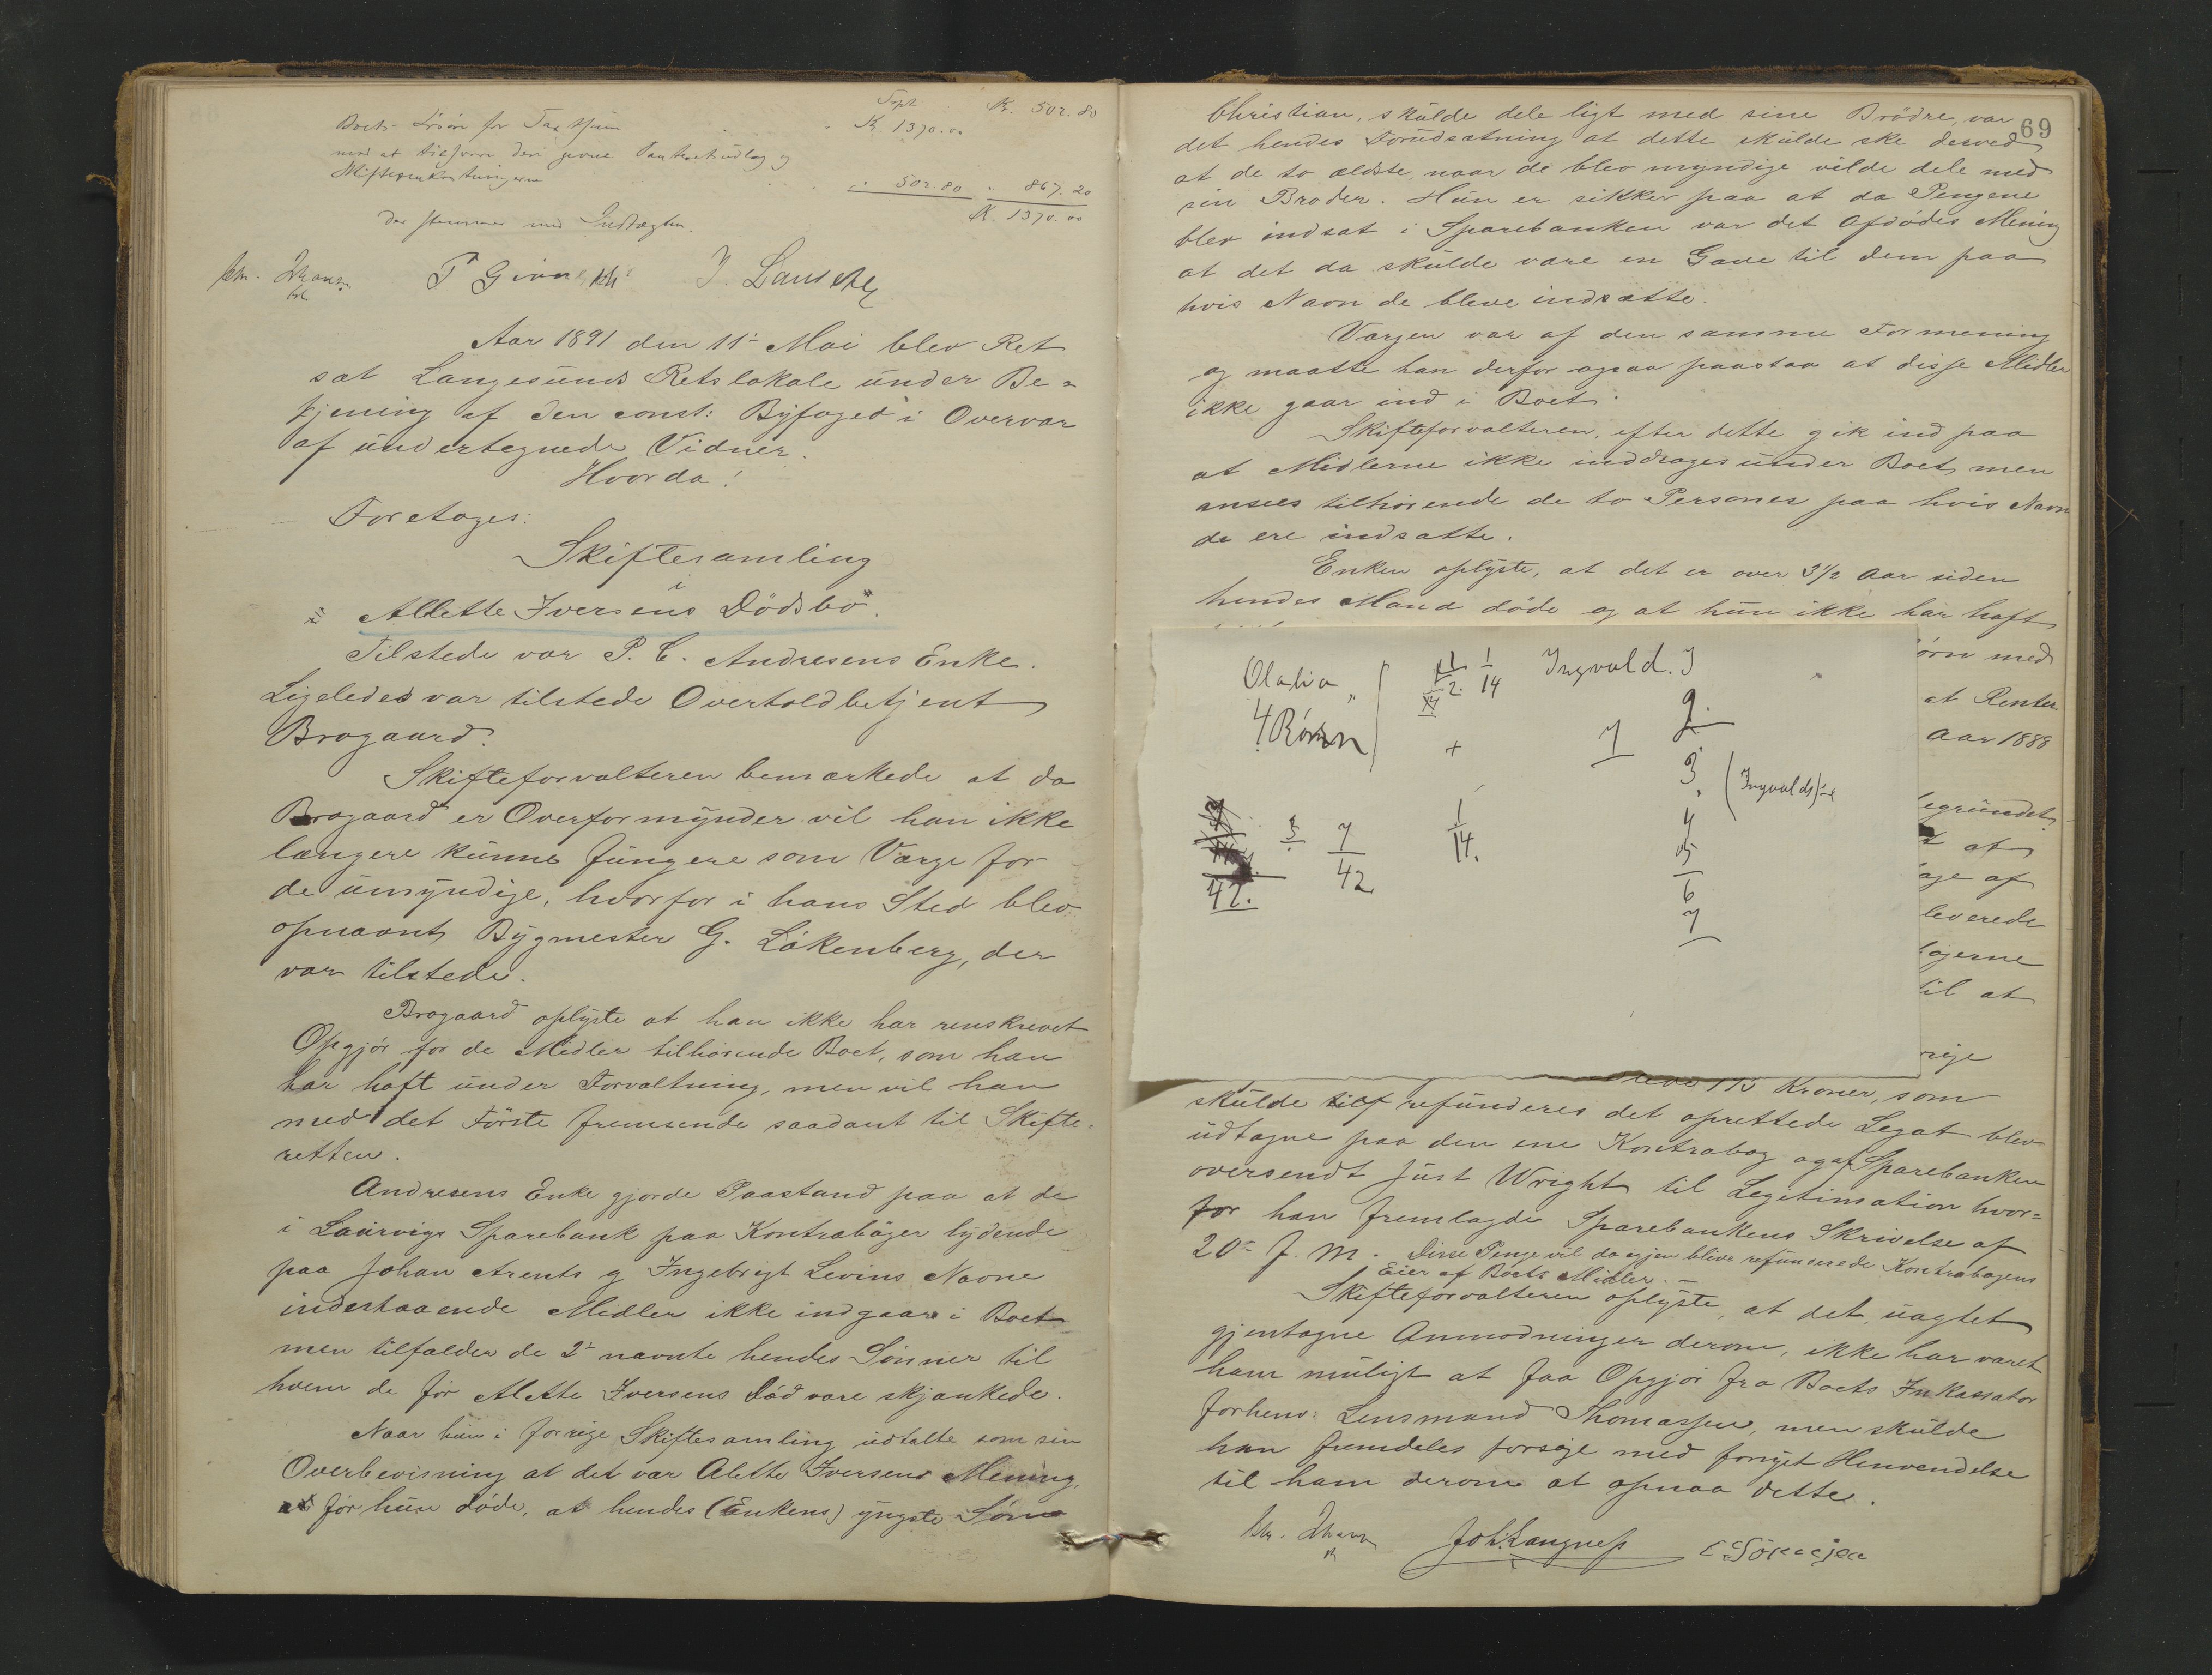 Transp. K. 502.80
Boets
K. 1370.00
med at tilsvare deri
502.80 867.20
K. 1370.00
der stemmer med Indtægten.
Aar 1891 den 11te Mai blev Ret
sat Langesunds Retslokale under Be-
tjening af den const: Byfoged i Overvær
af undertegnede Vidner.
Hvorda!
Foretages:
Skiftesamling
i
Allette Iversens Dödsbo".
Tilstede var P. C. Andresens Enke.
Ligeledes var tilstede Overtoldbetjent
Brogaard.
Skifteforvalteren bemærkede at da
Brogaard er Overformynder vil han ikke
længere kunne fungere som Værge for
de umyndige, hvorfor i hans Sted blev
opnævnt Bygmester G. Lökenberg, der
var tilstede.
Brogaard oplyste at han ikke har renskrevet
Opgjör for de Midler tilhörende Boet, som han
har haft under Forvaltning, men vil han
med det Förste fremsende saadant til Skifte-
retten.
Andresens Enke gjorde Paastand paa at de
i Laurvigs Sparebank paa Kontraböger lydende
paa Johan Arents og Ingebrigt Levins Navne
indestaaende Midler ikke indgaar i Boet
men tilfalder de 2de nævnte hendes Sönner til
hvem de för Alette Iversens Död vare skjænkede.
Naar hun i forrige Skiftesamling udtalte som sin
Overbevisning at det var Alette Iversens Mening,
för hun döde, at hendes (Enkens) yngste Sön
69
Christian, skulde dele ligt med sine Brödre, var
det hendes Forudsætning at dette skulde ske derved
at de to ældste, naar de blev myndige vilde dele med
sin Broder. Hun er sikker paa at da Pengene
blev indsat i Sparebanken var det Afdödes Mening
at det da skulde være en Gave til dem paa
hvis Navn de bleve indsatte.
Værgen var af den samme Formening
og maatte han derfor ogsaa paastaa at disse Midler
ikke gaar ind i Boet.
Skifteforvalteren, efter dette gik ind paa
at Midlerne ikke inddrages under Boet, men
ansees tilhörende de to Personer paa hvis Navn
de ere indsatte.
Enken oplyste, at det er over 3 1/2 Aar siden
hendes Mand döde og at hun ikke har haft
örn med
et Renter
Aar 1888
egrundet
at
age af
leverede
ögerne
til at
Olalia 1/14 Ingvald. I
4 Börn + 7 2.
3. (Ingvalds)
7/42 1/14. 4
42. 5
6
7
rige
115 Kroner, som
skulde refunderes det oprettede Legat blev
udtagne paa den ene Kontrabog og af Sparebanken
oversendt Just Wright til Legitimation hvor-
for han fremlagde Sparebankens Skrivelse af
20de f. M. Disse Penge vil da igjen blive refunderede Kontrabogens
Eier af Boets Midler. —
Skifteforvalteren oplyste, at det, uagtet
gjentagne Anmodninger derom, ikke har været
ham muligt at faa Opgjör fra Boets Inkassator
forhenv: Lensmand Thomassen, men skulde
han fremdeles forsöge med fornyet Henvendelse
til ham derom at opnaa dette.